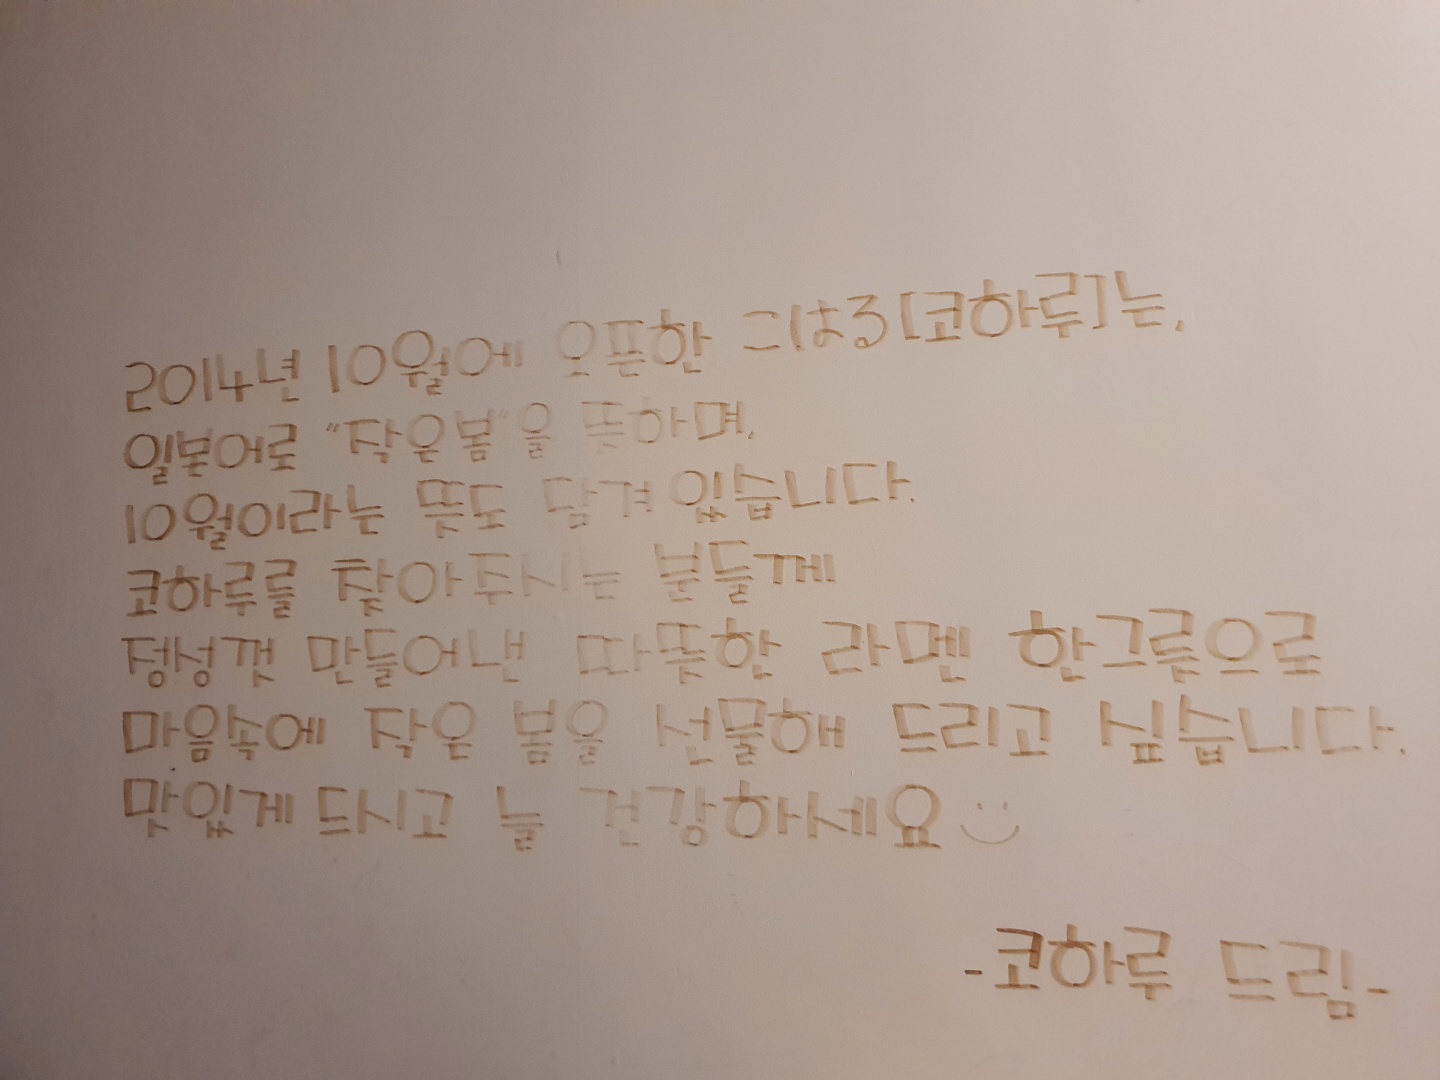 2014년 10월에 오픈한 こはる[코하루]는,
일본어로 "작은봄"을 뜻하며,
10월이라는 뜻도 담겨 있습니다.
코하루를 찾아주시는 분들께
정성껏 만들어낸 따뜻한 라멘 한그릇으로
마음속에 작은 봄을 선물해 드리고 싶습니다.
맛있게 드시고 늘 건강하세요
-코하루 드림-